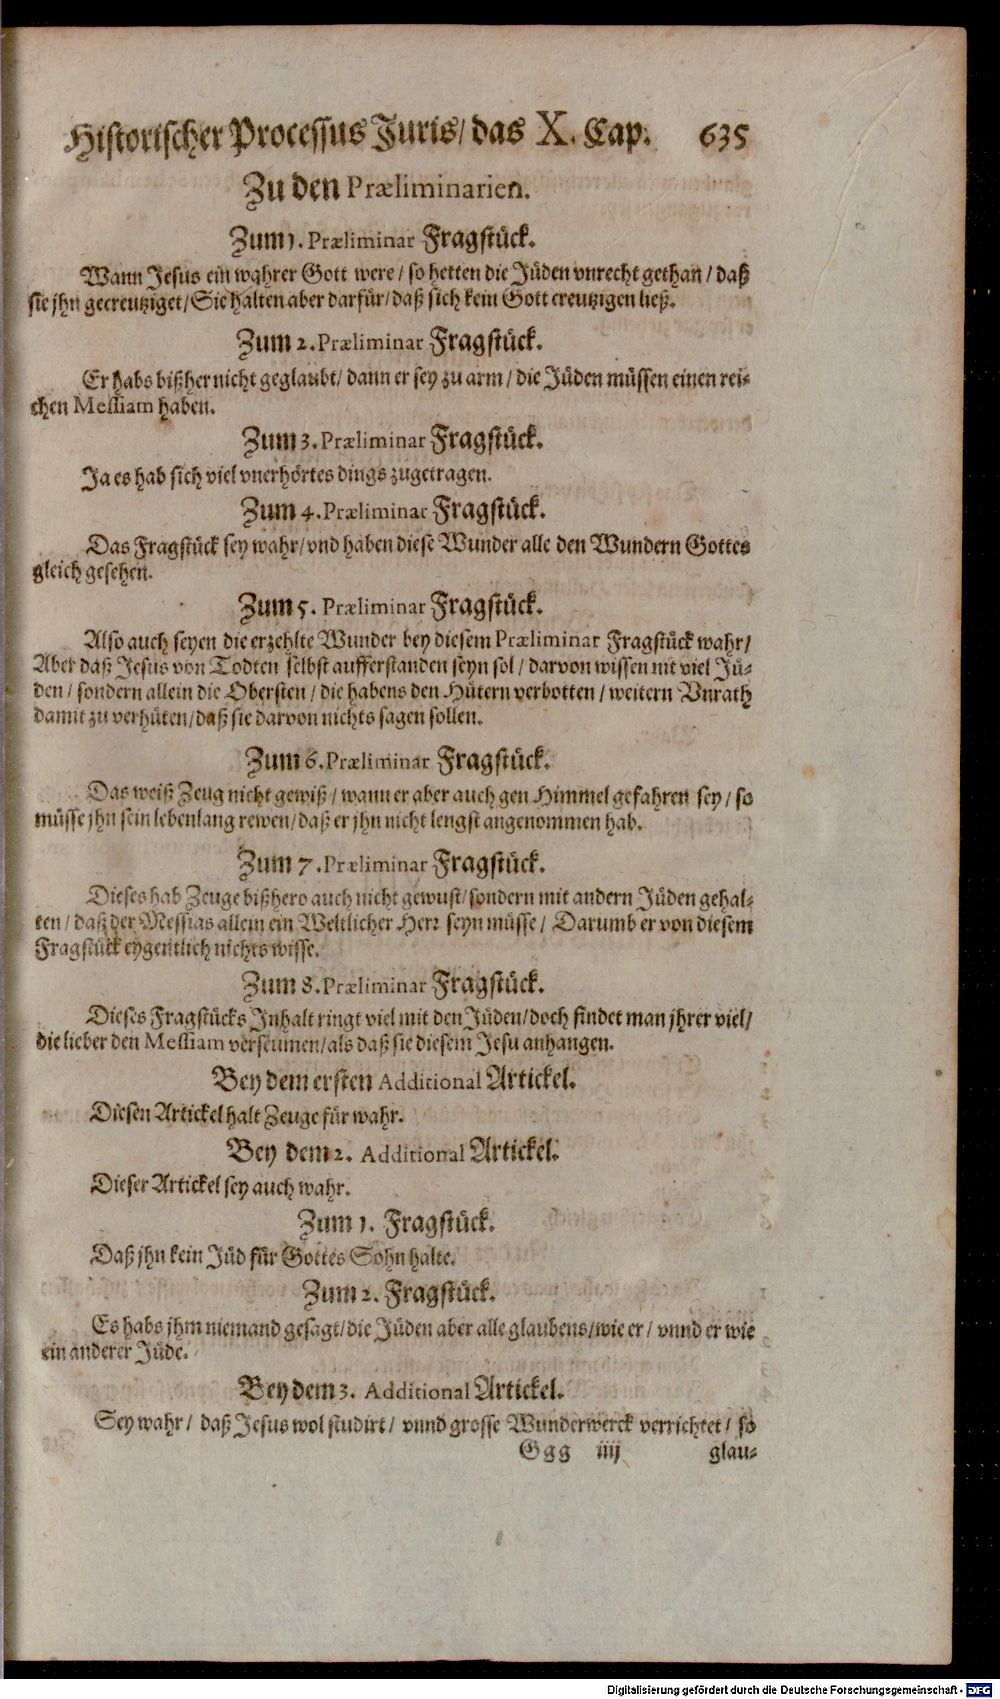 Historischer Processus Juris/ das X. Cap. 635
Zu den Præliminarien.
Zum 1. Præliminar Fragstück.
Wann Jesus ein wahrer Gott were / so hetten die Jüden vnrecht gethan / daß
sie jhn gecreutziget / Sie halten aber darfür / daß sich kein Gott creutzigen ließ.
Zum 2. Præliminar Fragstück.
Er habs bißher nicht geglaubt / dann er sey zu arm / die Jüden müssen einen rei-
chen Messiam haben.
Zum 3. Præliminar Fragstück.
Ja es hab sich viel vnerhörtes dings zugetragen.
Zum 4. Præliminar Fragstück.
Das Fragstück sey wahr / vnd haben diese Wunder alle den Wundern Gottes
gleich gesehen.
Zum 5. Præliminar Fragstück.
Also auch seyen die erzehlte Wunder bey diesem Præliminar Fragstück wahr /
Aber daß Jesus von Todten selbst aufferstanden seyn sol / darvon wissen nit viel Jü-
den / sondern allein die Obersten / die habens den Hütern verbotten / weitern Vnrath
damit zu verhüten / daß sie darvon nichts sagen sollen.
Zum 6. Præliminar Fragstück.
Das weiß Zeug nicht gewiß / wann er aber auch gen Himmel gefahren sey / so
müsse jhn sein lebenlang rewen / daß er jhn nicht lengst angenommen hab.
Zum 7. Præliminar Fragstück.
Dieses hab Zeuge bißhero auch nicht gewust / sondern mit andern Jüden gehal-
ten / daß der Messias allein ein Weltlicher Herr seyn müsse / Darumb er von diesem
Fragstück eygentlich nichts wisse.
Zum 8. Præliminar Fragstück.
Dieses Fragstücks Inhalt ringt viel mit den Jüden / doch findet man jhrer viel /
die lieber den Messiam verseumen / als daß sie diesem Jesu anhangen.
Bey dem ersten Additional Artickel.
Diesen Artickel halt Zeuge für wahr.
Bey dem 2. Additional Artickel.
Dieser Artickel sey auch wahr.
Zum 1. Fragstück.
Daß jhn kein Jüd für Gottes Sohn halte.
Zum 2. Fragstück.
Es habs jhm niemand gesagt / die Jüden aber alle glaubens / wie er / vnnd er wie
ein anderer Jüde.
Bey dem 3. Additional Artickel.
Sey wahr / daß Jesus wol studirt / vnnd grosse Wunderwerck verrichtet / so
Ggg iiij glau-
Digitalisierung gefördert durch die Deutsche Forschungsgemeinschaft - DFG